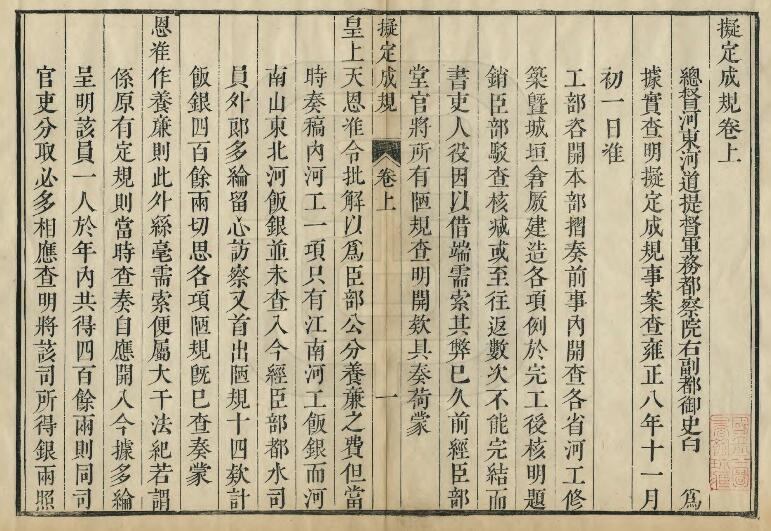 擬定成規卷上
總督河東河道提督軍務都察院右副都御史白 爲
據實查明擬定成規事案查雍正八年十一月
初一日准
工部咨開本部摺奏前事內開查各省河工修
築暨城垣倉厫建造各項例於完工後核明題
銷臣部駁查核减或至往返數次不能完結而
書吏人役因以借端需索其弊已久前經臣部
堂官將所有陋規查明開欵具奏荷蒙
擬定成規 卷上 一
皇上天恩准令批解以爲臣部公分養亷之費但當
時奏稿內河工一項只有江南河工飯銀而河
南山東北河飯銀並未查入今經臣部都水司
員外郎多綸留心訪察又首出陋規十四欵計
飯銀四百餘兩切思各項陋規旣已查奏蒙
恩准作養亷則此外絲毫需索便屬大干法紀若謂
係原有定規則當時查奏自應開入今據多綸
呈明該員一人於年內共得四百餘兩則同司
官吏分取必多相應查明將該司所得銀兩照